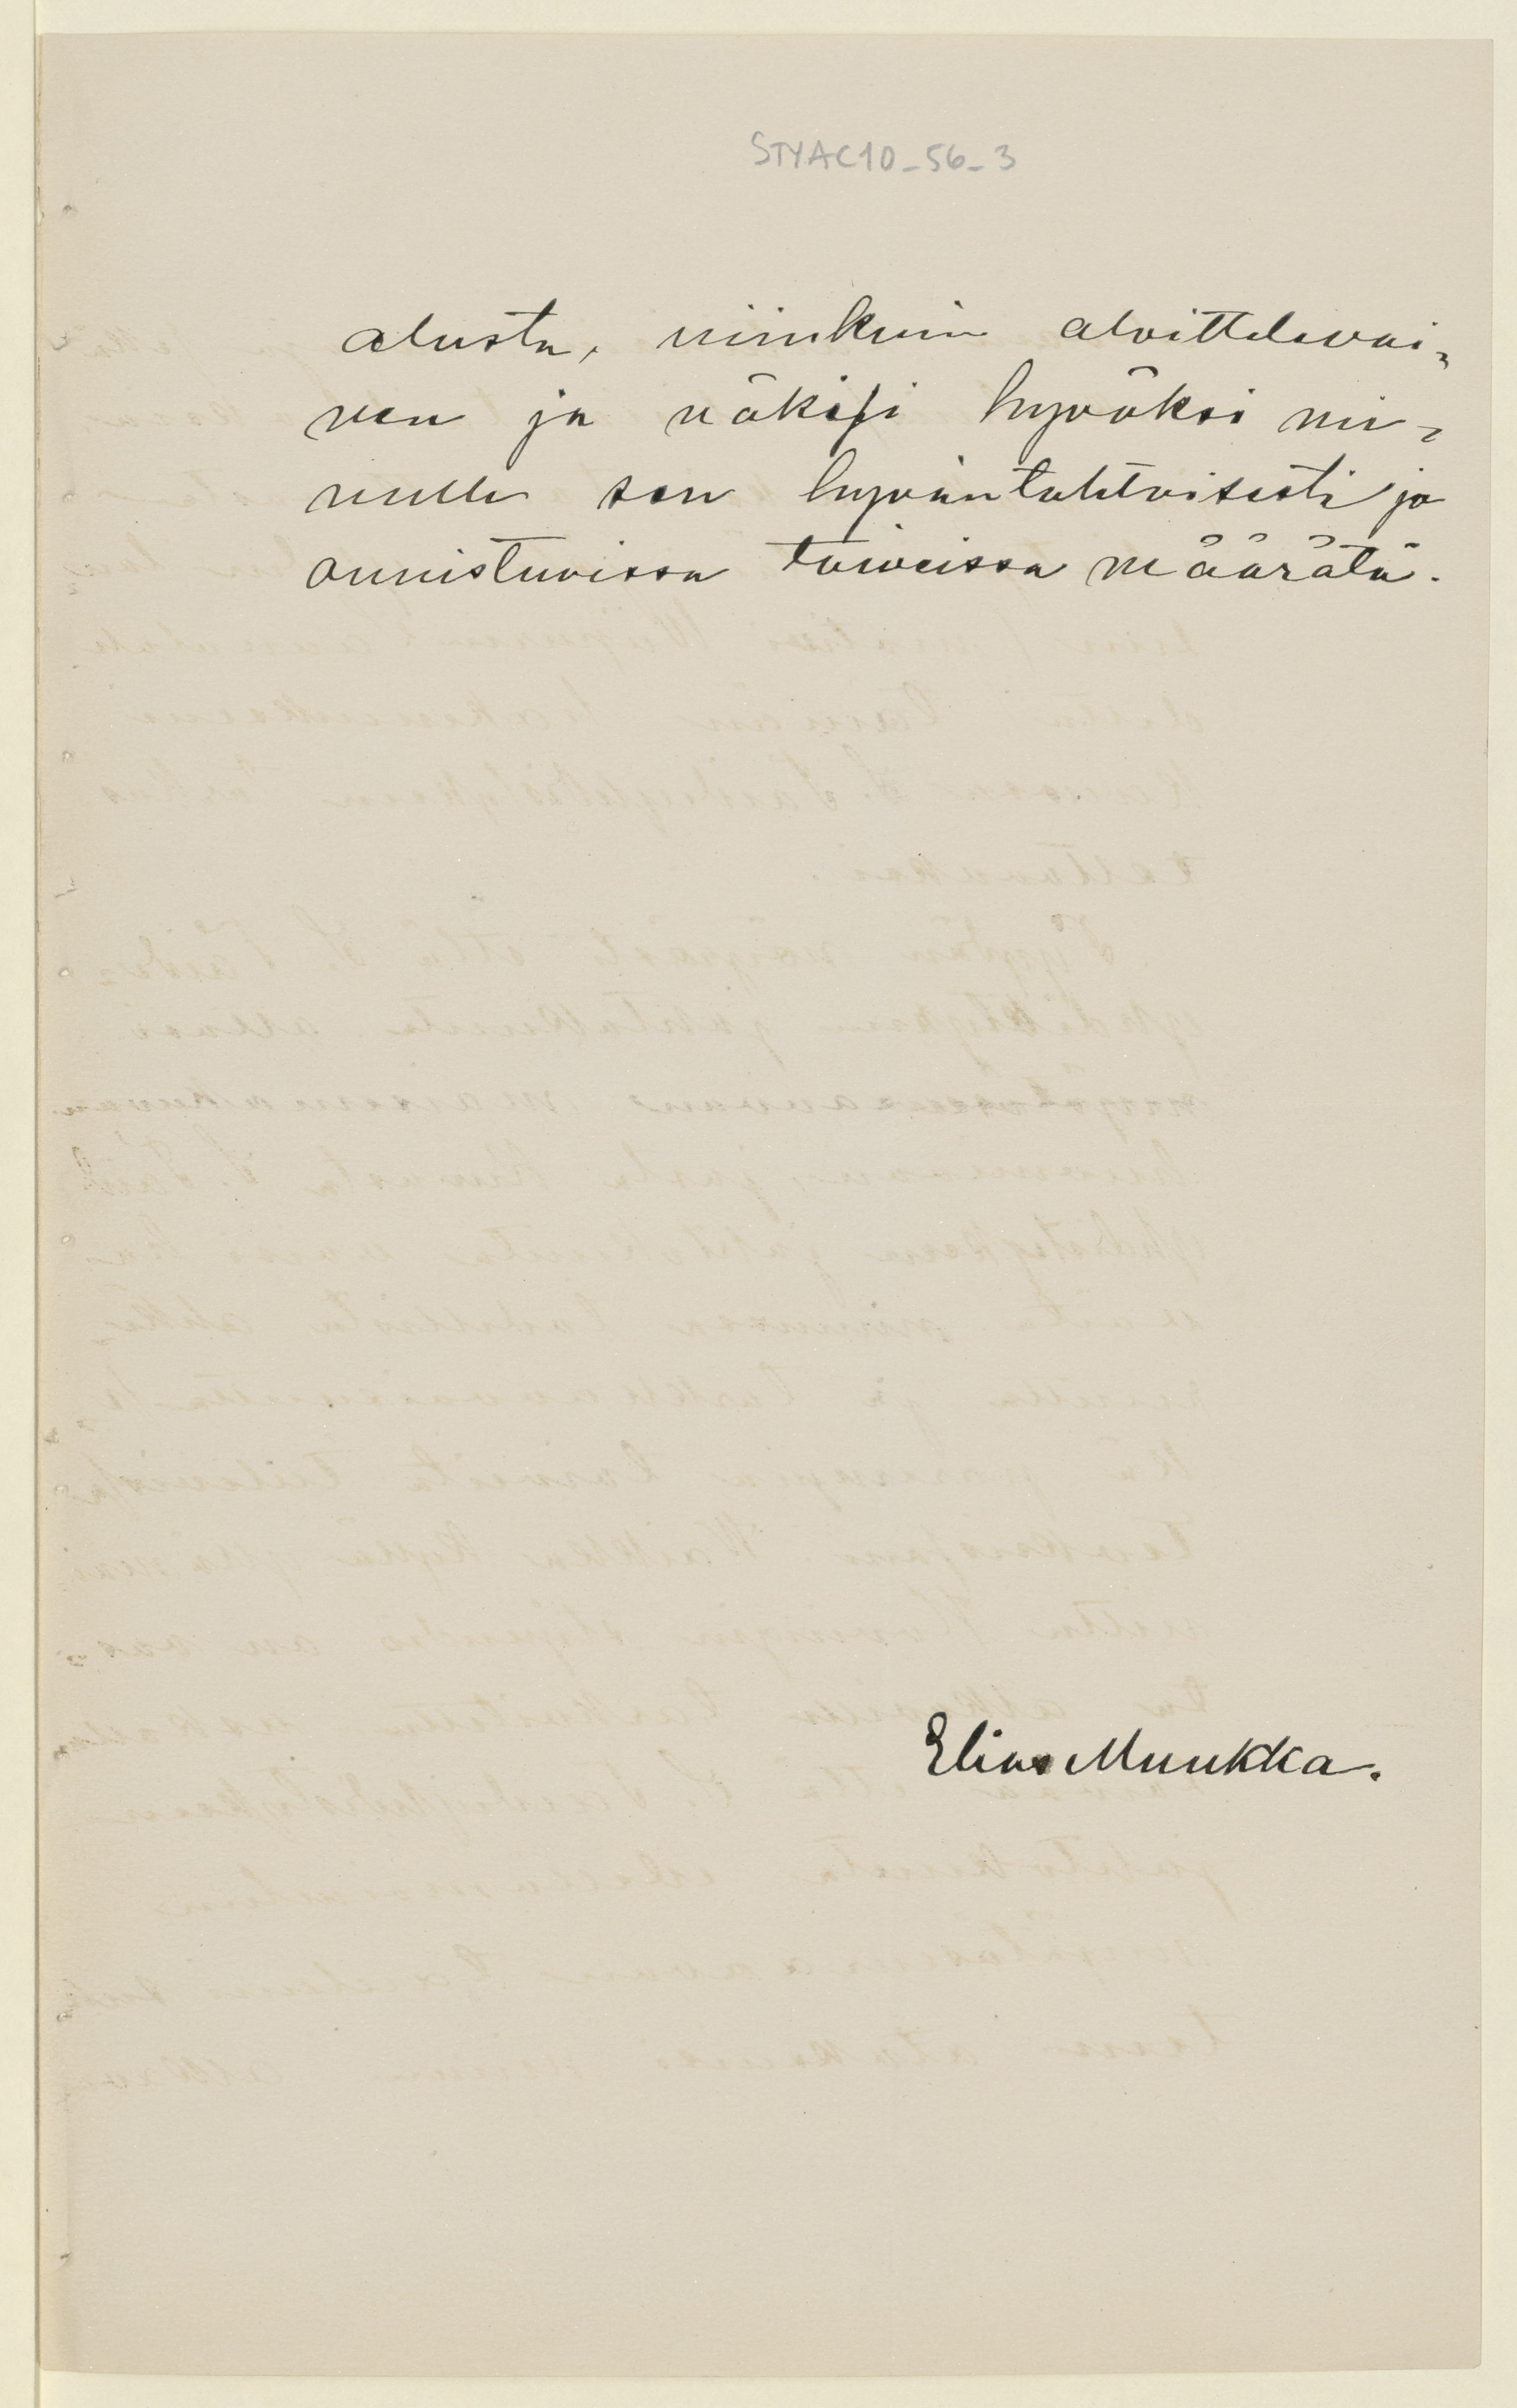 STYAC10_56_3
alusta, niinkuin alvittelevai=
nen ja näkisi hyväksi mi=
nulle sen hyväntahtoisesti ja
onnistuvissa toiveissa määrätä.
Elias Muukka.